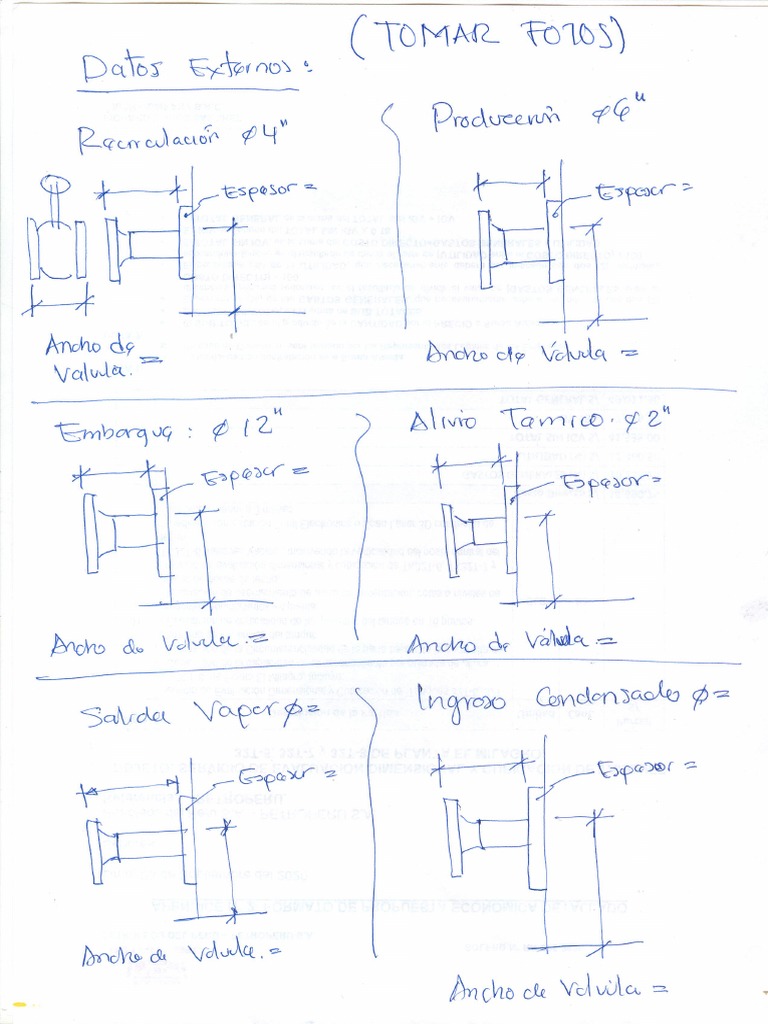 (TOMAR FOTOS)
Datos Externos:
Recirculación ø4"
Espesor =
Ancho de
Valvula. =
Producción ø6"
Espesor =
Ancho de Válvula =
Embarque: ø 12"
Espesor =
Ancho de Valvula. =
Alivio Tamico. ø2"
Espesor =
Ancho de Válvula =
Salida Vapor ø=
Espesor =
Ancho de Valvula. =
Ingreso Condensado ø=
Espesor =
Ancho de Valvula =